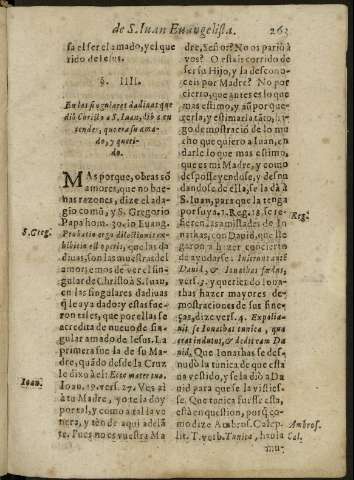 de S. Iuan Euangelista. 263
sa el ser el amado, y el que
rido de Iesus.
§. IIII.
En los singulares dadiuas que
diò Christo a S. Iuan, se
ender, que era su ama-
do, y queri-
do.
MAs porque, obras sõ
amores, que no bue-
nas razones, dize el ada-
gio comũ, y S. Gregorio
Papa hom. 30. in Euang.
Probatio ergo dilectionis ex-
hibitio est operis, que las da
diuas, son las muestras del
amor; emos de ver el sin-
gular de Christo à S. Iuan,
en las singulares dadiuas
q̃ le aya dado; y estas fue-
ron tales, que por ellas se
acredita de nueuo de sin-
gular amado de Iesus. La
primera fue la de su Ma-
dre, quãdo desde la Cruz
le dixo a èl: Ecce mater tua.
Ioan. 19. vers. 27. Ves ai
à tu Madre, yo te la doy
por tal, y como a tal la ve
nera, y ten de aqui adelã
te. Pues no es vuestra Ma
S. Greg.
Ioan.
dre, Señor? No os pariò à
vos? O estais corrido de
ser su Hijo, y la descono-
ceis por Madre? No por
cierto, que antes es lo que
mas estimo, y aũ por que-
rerla, y estimarla tãto,
go demostraciõ de lo mu
cho que quiero a Iuan, en
darle lo que mas estimo,
que es mi Madre, y como
desposseyendose, y desnu
dandose de ella, se la dà à
S. Iuan, para que la tenga
por suya. 1. Reg. 18. se re-
fieren las amistades de Io-
nathas, con Dauid, que lle
garon a hazer concierto
de ayudarse: Inierunt autẽ
Dauid, & Ionathas fœdus,
vers. 3. y queriendo Iona-
thas hazer mayores de-
mostraciones de sus fine-
ças, dize vers. 4. Expolia-
uit se Ionathas tunica, qua
erat indutus, & dedit eam Da
uid, Que Ionathas se des-
nudò la tunica de que esta
ua vestido, y se la diò a Da
uid para que se la vistiesse.
Que tunica fuesse esta,
està en question, porq̃ co-
mo dize Ambros. Calep.
lit. T. verb. Tunica, hauia
mu-
Reg.
Ambros.
Cal.